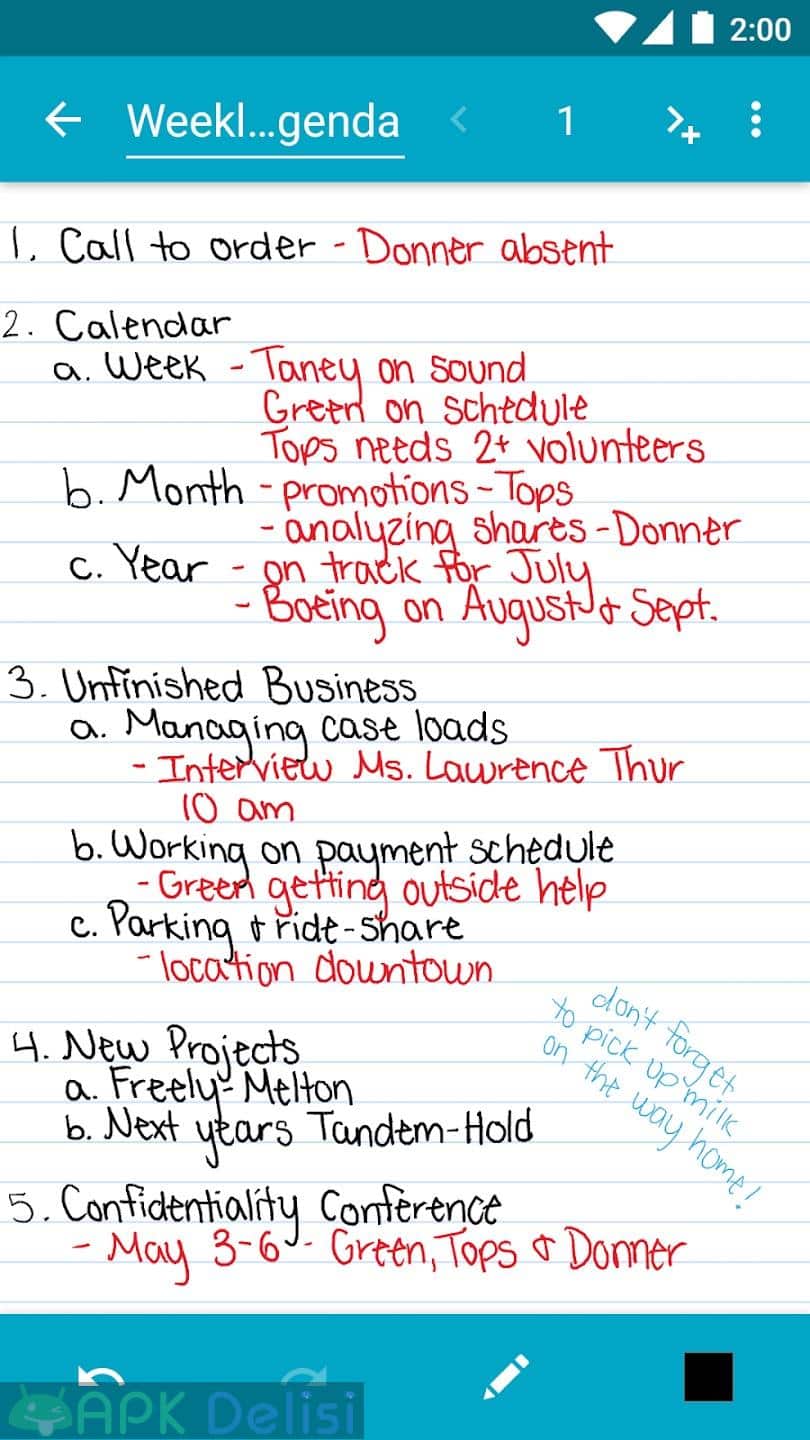 2:00
Weekl...genda
1
1. Call to order - Donner absent
2. Calendar
a. Week - Taney on sound
Green on schedule
Tops needs 2+ volunteers
b. Month - promotions - Tops
- analyzing shares - Donner
c. Year - on track for July
- Boeing on August & Sept.
3. Unfinished Business
a. Managing case loads
- Interview Ms. Lawrence Thur
10 am
b. Working on payment schedule
- Green getting outside help
c. Parking & ride-share
- location downtown
don't forget
to pick up milk
on the way home!
4. New Projects
a. Freely-Melton
b. Next years Tandem-Hold
5. Confidentiality Conference
- May 3-6 - Green, Tops & Donner
APK Delisi